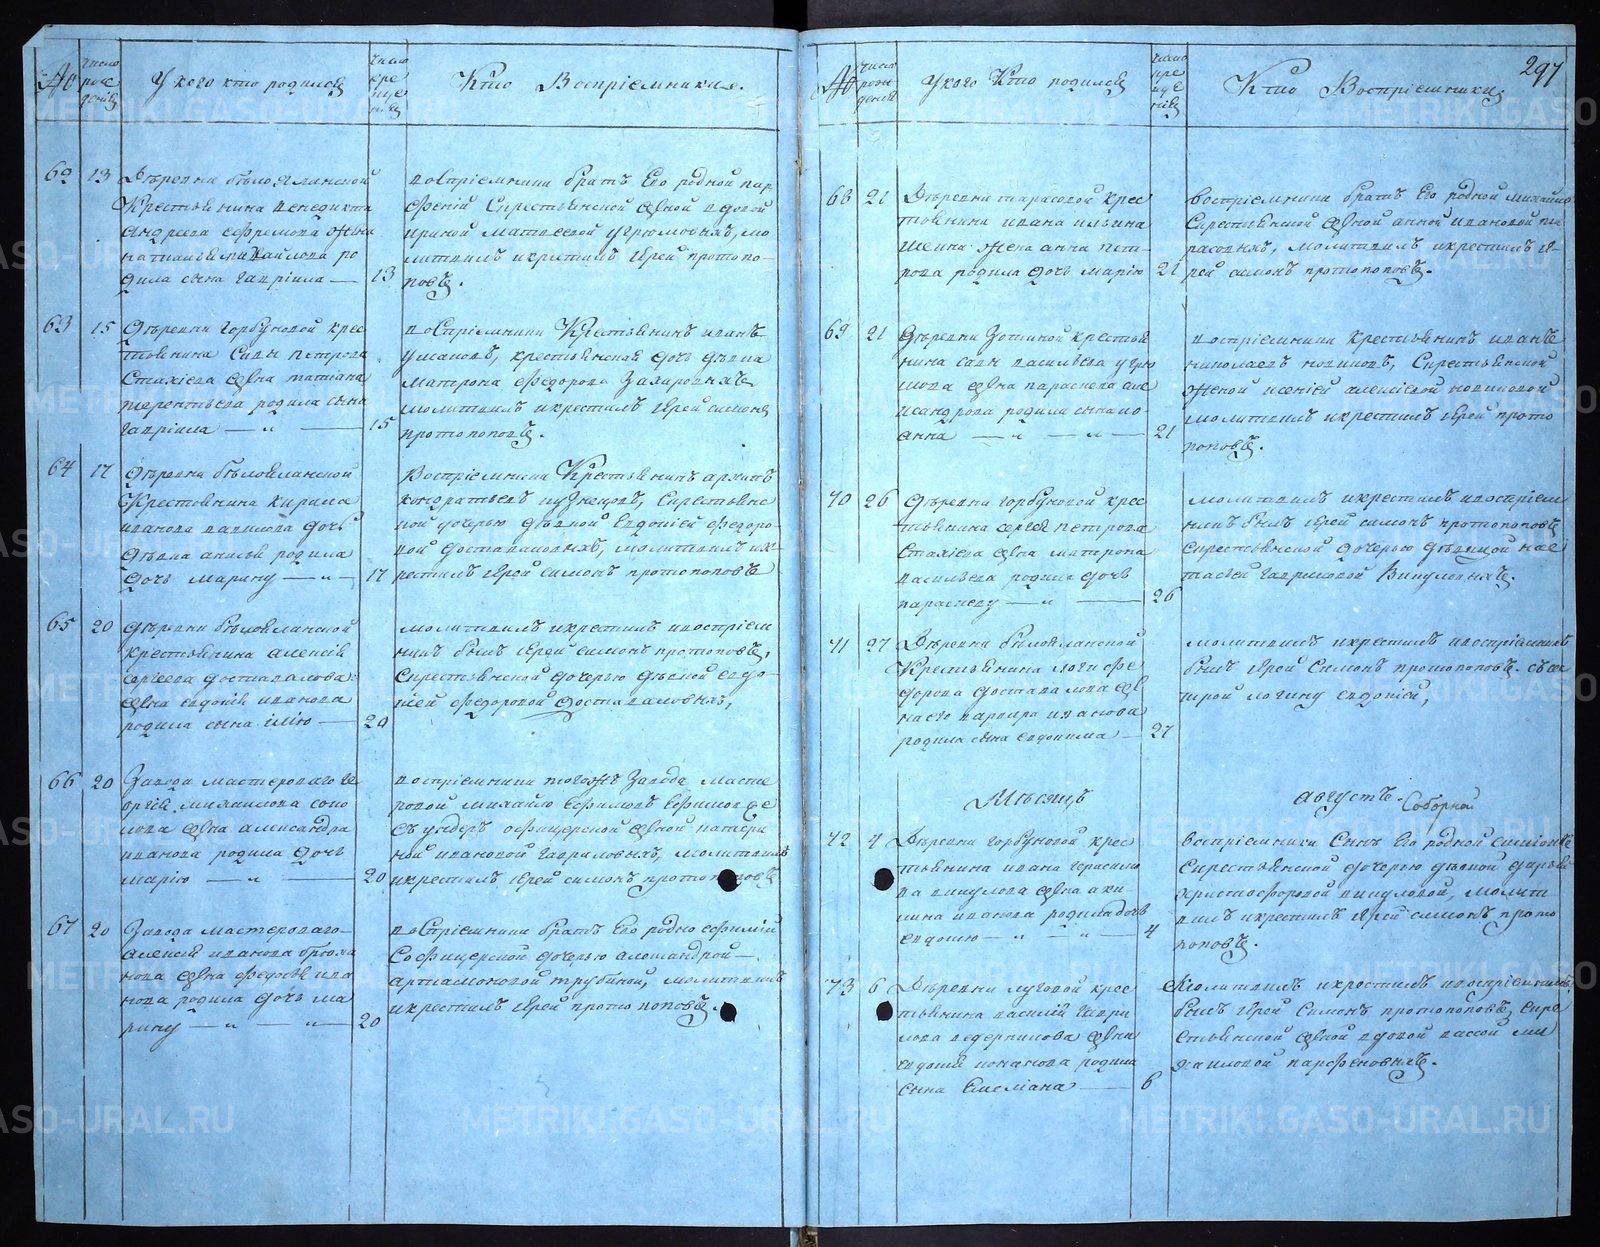 №
число рождения
У кого кто родился
число крещения
Кто Восприемники.
62 13 Деревни белоеланской
Крестьянина Венедикта
андреева ефремова жена
михайлова ро
дила сына гавриила 13
восприемники братъ Его родной пар
фений Скрестьянской женой вдовой
ириной матвеевой угрюмовыхъ, мо
литвилъ икрестилъ Иерей протопо
повъ.
63 15 деревни горбуновой крес
тьянина Савы петрова
Стахиева жена татиана
терентьева родила сына
гавриила 15
восприемники Крестьянинъ иванъ
ушаковъ, крестьянская дочь девка
матрона федорова Захаровныхъ
молитвилъ икрестилъ Иерей симонъ
протопоповъ.
64 17 деревни белоеланской
Крестьянина кирила
иванова вавилова дочь
девка анисья родила
дочь марину 17
Восприемники Крестьянинъ архипъ
кондратьевъ кузнецовъ, Скрестьянс
кой дочерью девкой Евдокией федоро
вой доставаловыхъ, молитвилъ ик
рестилъ Иерей симонъ протопоповъ
65 20 деревни белоеланской
крестьянина алексея
сергеева доставалова
жена евдокия иванова
родила сына илию 20
молитвилъ икрестилъ ивосприем
никъ былъ Иерей симонъ протопоповъ,
Скрестьянской дочерью девкой евдо
кией федоровой доставаловыхъ,
66 20 Завода мастероваго ге
оргия михаилова соко
лова жена александра
иванова родила дочь
марию 20
восприемники тогожъ Завода масте
ровой михайло Ефимовъ
съ ундеръ офицерской женой катери
ной ивановой гавриловыхъ, молитвилъ
икрестилъ Иерей симонъ протопоповъ
67 20 Завода мастероваго
алексея иванова
жена федосья ива
нова родила дочь ма
рину 20
восприемники братъ Его родной ефимий
Софицерской дочерью александрой
артамоновой трубиной, молитвилъ
икрестилъ Иерей протопоповъ.
297
№
число рождения
У кого Кто родился
число крещения
Кто Восприемники
68 21 Деревни тарасовой крес
тьянина ивана ильина
жена анна пет
рова родила дочь марию 21
восприемники братъ Его родной михайло
Скрестьянской женой анной ивановой та
расовыхъ, молитвилъ икрестилъ Ие
рей симонъ протопоповъ.
69 21 Деревни Зотиной крестья
нина савы васильева угрю
мова жена параскева але
ксандрова родила сына ио
анна 21
восприемники крестьянинъ иванъ
николаевъ новиковъ, Скрестьянской
женой ксенией алексеевой новиковой
молитвилъ икрестилъ Иерей прото
поповъ.
70 26 деревни горбуновой крес
тьянина сергея петрова
Стахиева жена матрона
васильева родила дочь
параскеву 26
молитвилъ икрестилъ ивосприем
никъ былъ Иерей симонъ протопоповъ
Скрестьянской дочерью девицой нас
тасьей гавриловой Викуловыхъ.
71 27 Деревни белоеланской
Крестьянина логи фе
дорова доставалова же
на его варвара иванова
родила сына евдокима 27
молитвилъ икрестилъ ивосприемникъ
былъ Иерей Симонъ протопоповъ. съсес
трой логину евдокией,
Месяцъ августъ. Соборной
72 4 Деревни горбуновой крес
тьянина ивана герасимо
ва викулова жена аки
лина иванова родила дочь
евдокию 4
восприемники Сынъ Его родной симионъ
Скрестьянской дочерью девкой дарьей
христофоровой викуловой, молит
вилъ икрестилъ Иерей симонъ прото
поповъ.
73 6 Деревни луговой крес
тьянина василия гаври
лова ведерникова жена
евдокия кононова родила
сына Емелиана 6
Молитвилъ икрестилъ ивосприемникъ
былъ Иерей Симонъ протопоповъ, Скре
стьянской женой вдовой вассой ми
хаиловой парфеновыхъ.